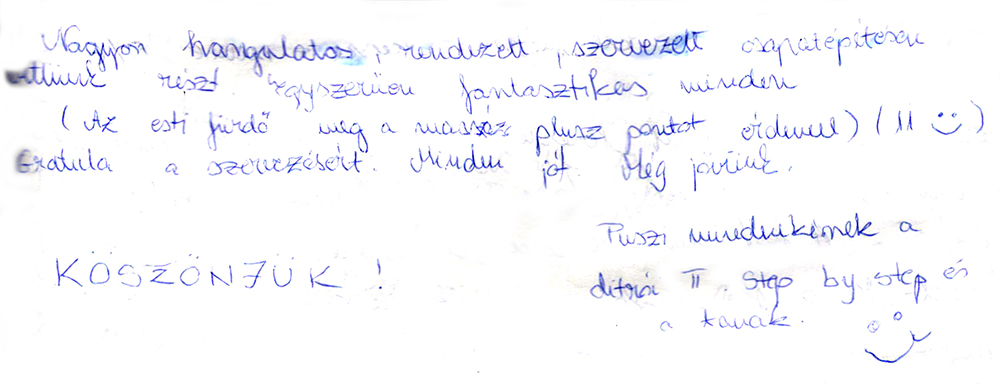 Nagyon hangulatos, rendezett, szervezett csapatépítésen
vettünk részt egyszerűen fantasztikus minden
(Az esti fürdő meg a masszáz plusz pontot érdemel) (!! ☺)
Gratula a szervezésért. Minden jót. Még jövünk.
KÖSZÖNJÜK !
Puszi mindenkinek a
ditrói II. step by step és
a